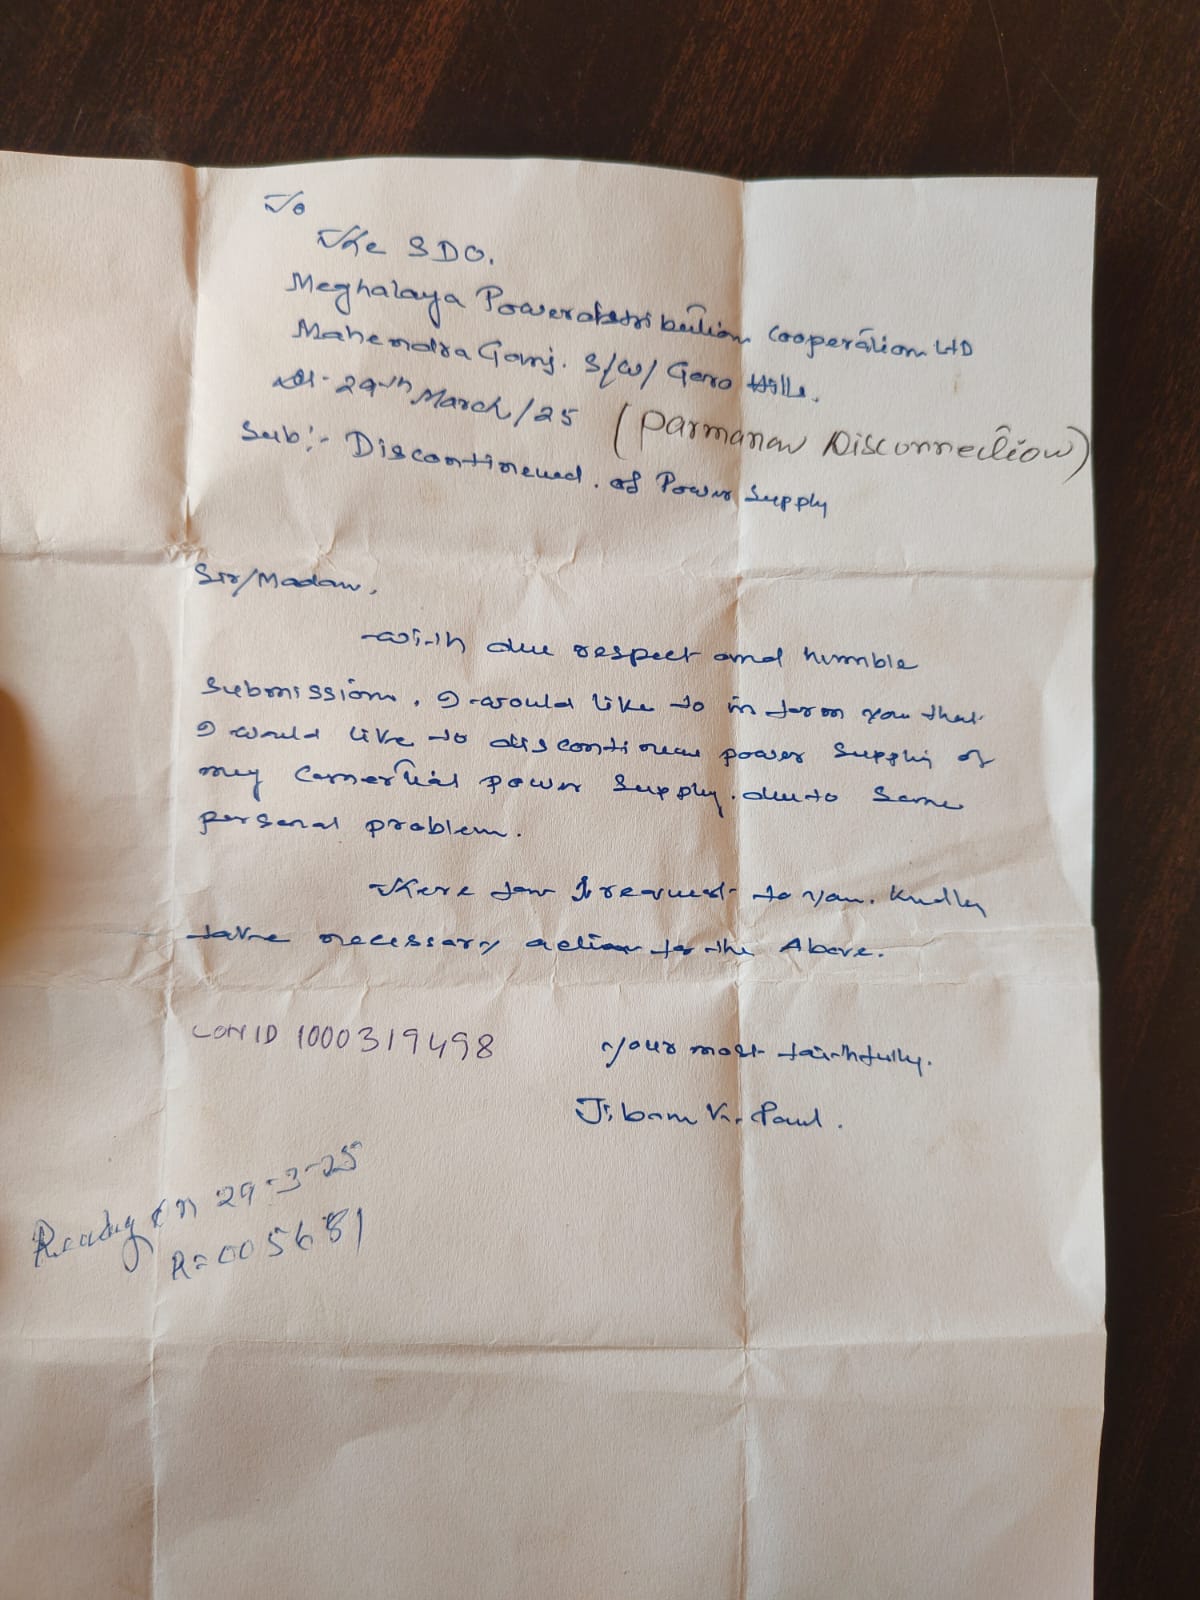 To
The SDO.
Meghalaya Power distribution Cooperation LTD
Mahendra Ganj. S/W/ Garo Hills.
Dt- 29th March/25
(Parmanan Disconnection)
Sub:- Discontinued. of Power Supply
Sir/Madam,
With due respect and humble
submission, I would like to inform you that
I would like to discontinue power supply of
my Commertial power supply. due to some
personal problem.
There for I request to you. Kindly
take necessary action to the Above.
CON ID 1000319498
your most faithfully.
Jiban Kr. Paul.
Reading on 29-3-25
R=005681